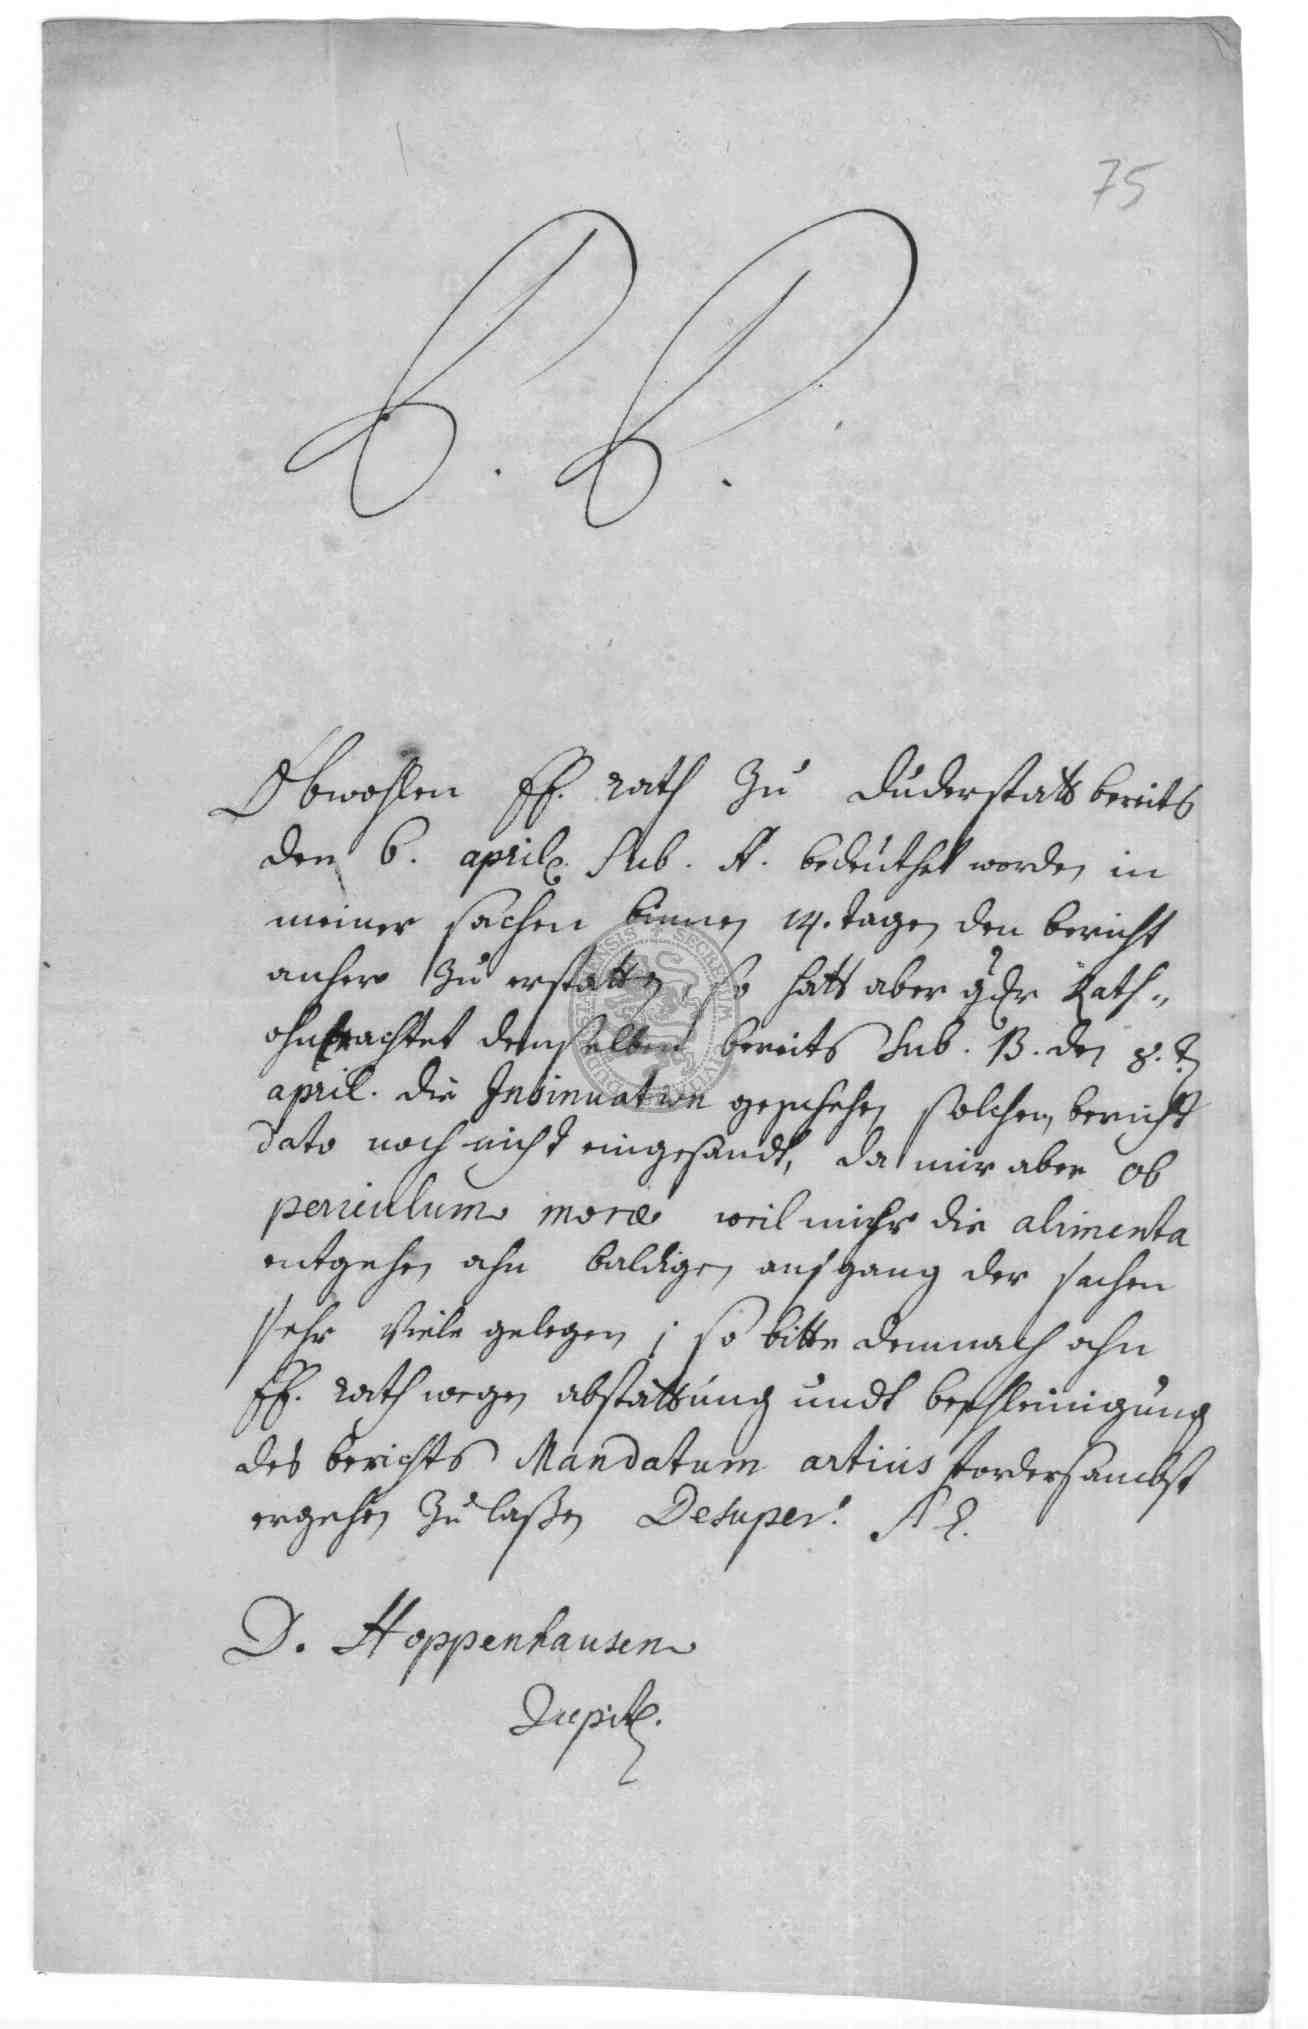 75
P. P.
Obwohlen Ef. rath zu duderstatt bereits
den 6. april. Sub. A. bedeuthet worden in
meiner sachen binnen 14. tagen den bericht
anhero zu erstatten, so hatt aber Rath„
ohnerachtet demselben bereits Sub. B. den 8. t.
april. die Insinuation geschehen solchen bericht
dato noch nicht eingesandt, da mir aber ob
periculum moræ weil mihr die alimenta
entgehen ahn baldigen ausgang der sachen
sehr viele gelegen; so bitte demnach ahn
Ef. rath wegen abstattung undt beschleinigung
des berichts Mandatum artius fordersambst
ergehen zu laßen Desuper.
D. Hoppenhausen